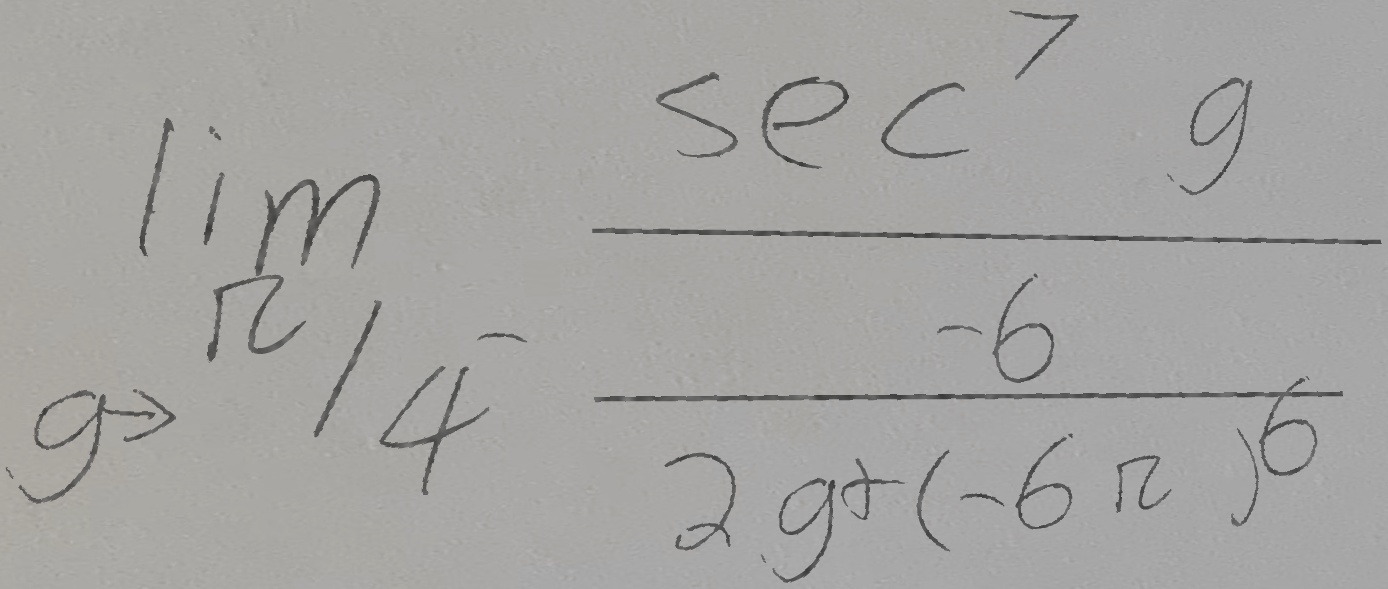 \lim_{g \to \pi/4^-} \frac{\sec^7 g}{\frac{-6}{2g+(-6\pi)^6}}